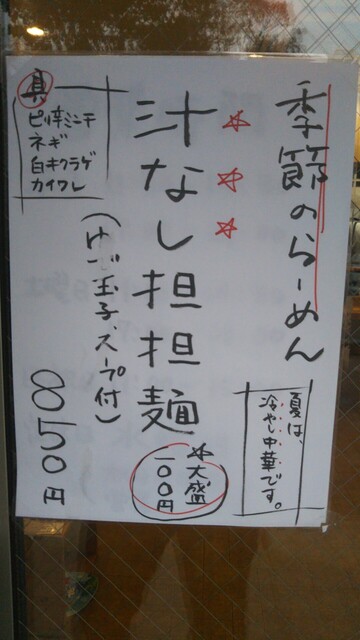 季節のらーめん
夏は、
冷やし中華です。
汁なし担担麺
☆大盛
一〇〇円
(ゆで玉子スープ付)
850円
具
ピリ辛ミンチ
ネギ
白キクラゲ
カイワレ